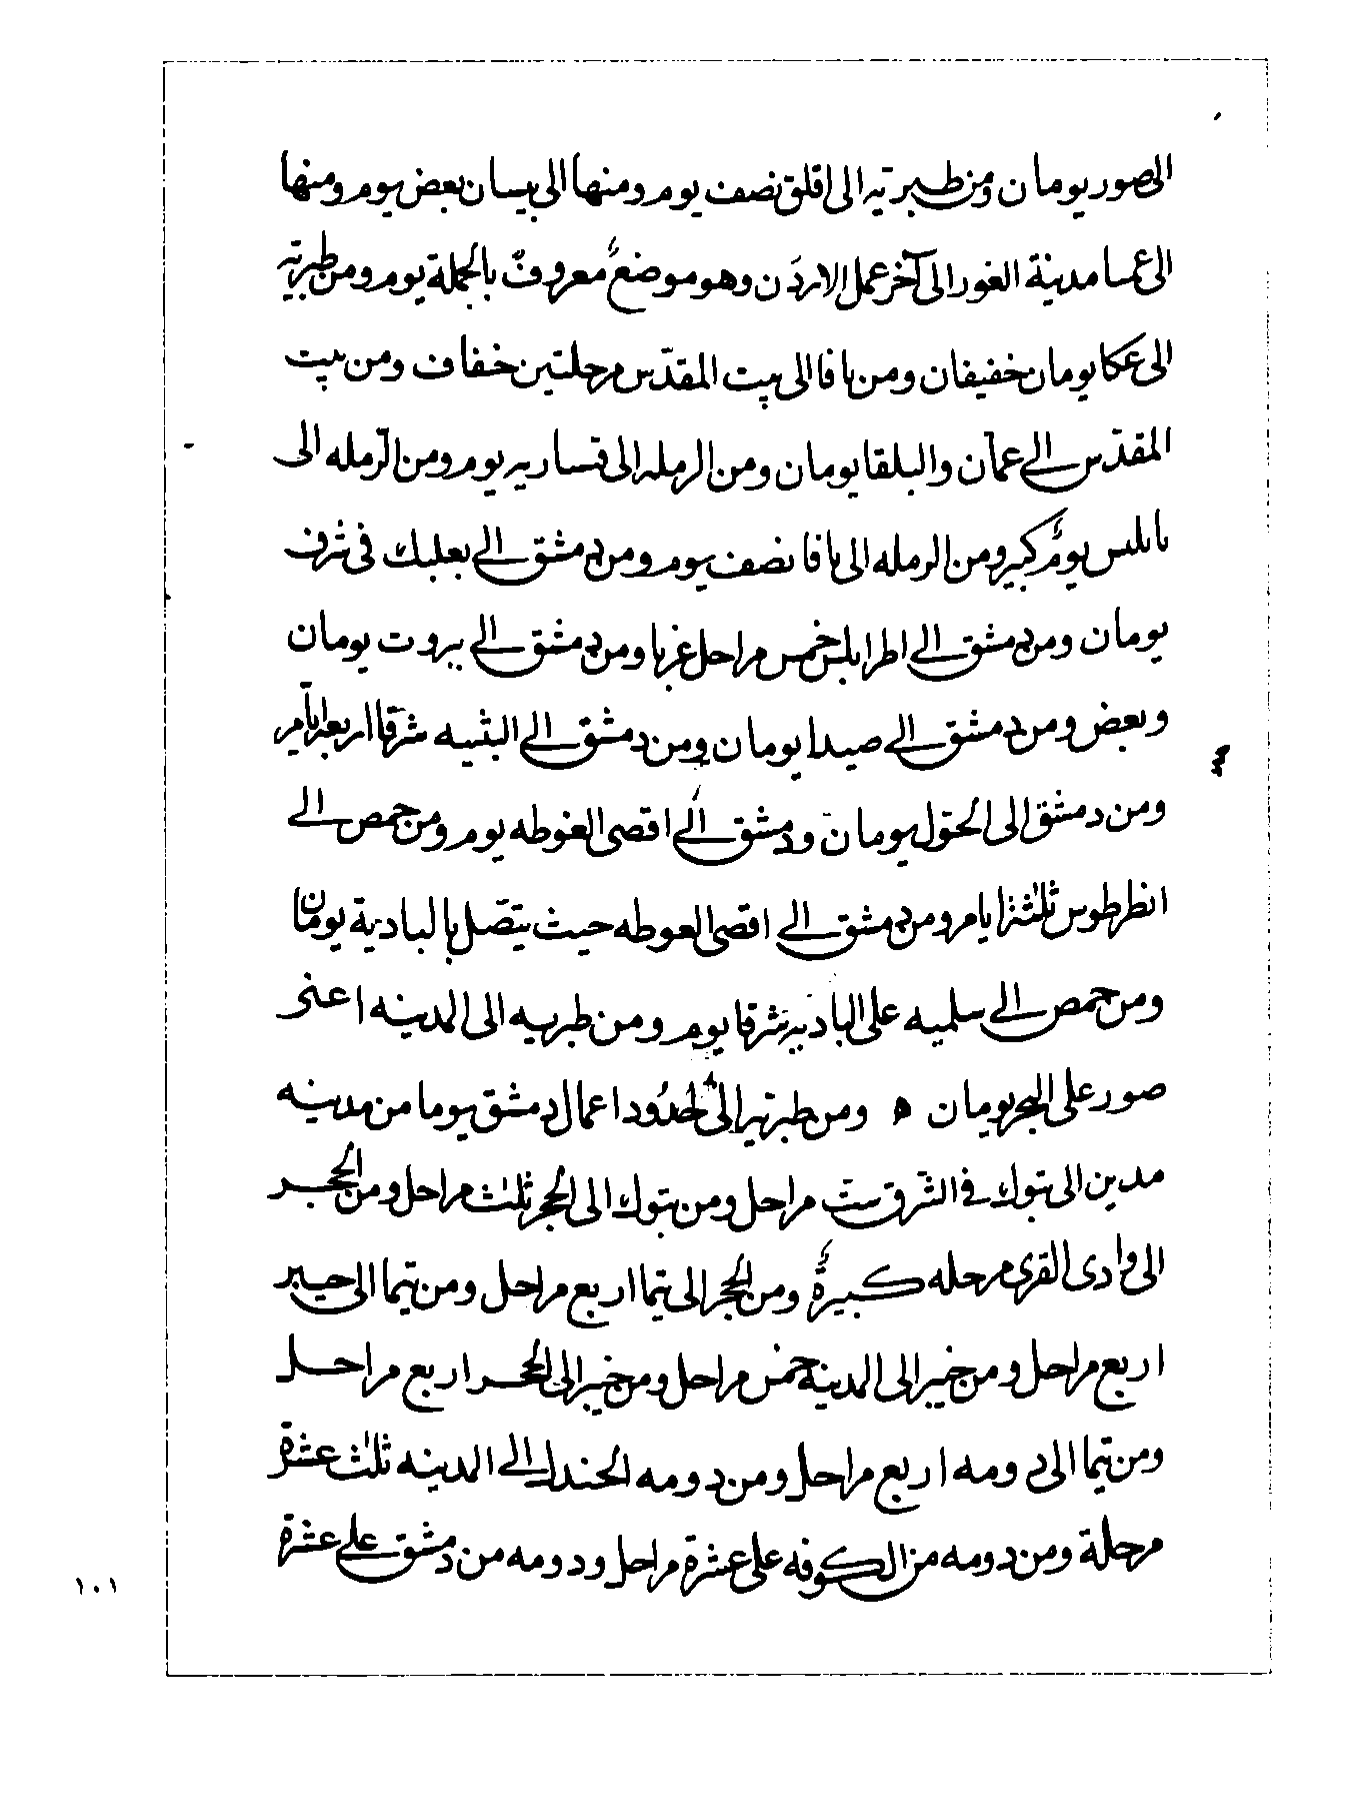 الى صور يومان ومن طبرية الى افلق نصف يوم ومنها الى بيسان بعض يوم ومنها
الى عمسا مدينة الغور الى آخر عمل الاردن وهو موضع معروف بالجملة يوم ومن طبرية
الى عكا يومان خفيفان ومن يافا الى بيت المقدس مرحلتين خفاف ومن بيت
المقدس الى عمان والبلقا يومان ومن الرمله الى قنساريه يوم ومن الرمله الى
نابلس يوم كبير ومن الرمله الى يافا نصف يوم ومن دمشق الى بعلبك في شرف
يومان ومن دمشق الى اطرابلس خمس مراحل غربا ومن دمشق الى بيروت يومان
وبعض ومن دمشق الى صيدا يومان ومن دمشق الى البثنيه شرقا اربعة ايام
ومن دمشق الى الحول يومان ودمشق الى اقصى الغوطه يوم ومن حمص الى
انطرطوس ثلثة ايام ومن دمشق الى اقصى العوطه حيث يتصل بالبادية يومان
ومن حمص الى سلميه على البادية شرقا يوم ومن طبريه الى المدينه اعنى
صور على البحر يومان ه ومن طبرية الى لحدود اعمال دمشق يوما من مدينه
مدين الى تبوك في الشرق ست مراحل ومن تبوك الى الحجر ثلث مراحل ومن الحجر
الى وادى القرى مرحله كبيرة ومن الحجر الى تيما اربع مراحل ومن تيما الى خيبر
اربع مراحل ومن خيبر الى المدينه خمس مراحل ومن خيبر الى الحجر اربع مراحل
ومن تيما الى دومه اربع مراحل ومن دومه الجندل الى المدينه ثلث عشرة
مرحلة ومن دومه من الكوفه على عشرة مراحل ودومه من دمشق على عشرة
١٠١